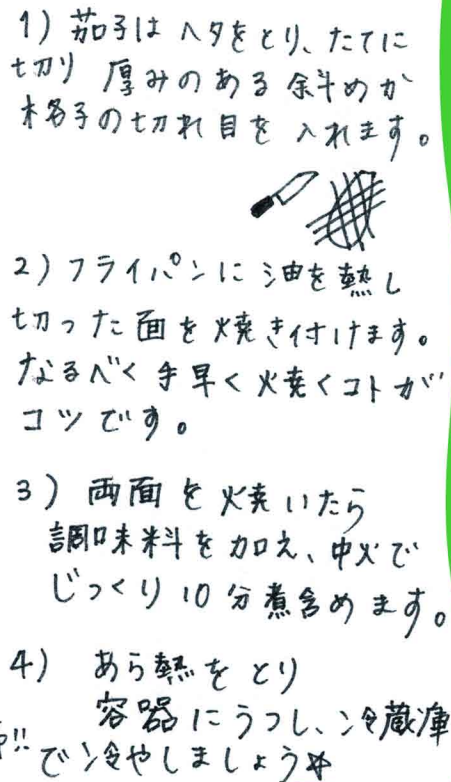 1) 茄子は ヘタをとり、たてに
切り 厚みのある 斜めか
格子の切れ目を 入れます。
2) フライパンに 油を熱し
切った面を焼き付けます。
なるべく手早く焼くコトが
コツです。
3) 両面を焼いたら
調味料を加え、中火で
じっくり10分煮含めます。
4) あら熱をとり
容器にうつし、冷蔵庫
で冷やしましょう☆